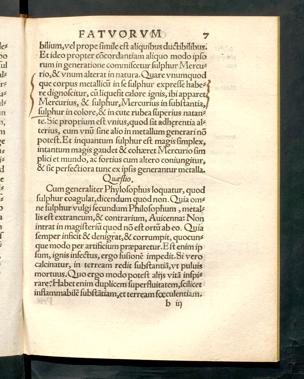 FATVORVM 7
bilium, vel prope simile est aliquibus ductibilibus.
Et ideo propter cōcordantiam aliquo modo ipso
rum in generatione commiscetur sulphur Mercu-
rio, & vnum alterat in natura. Quare vnumquod
que corpus metallicū in se sulphur expresse habe-
re dignoscitur, cū liquefit calore ignis, ibi apparet
Mercurius, & sulphur, Mercurius in substantia,
sulphur in colore, & in cute rubea superius natan-
te. Sic proprium est vnius, quod sit adhærentia al-
terius, cum vnū sine alio in metallum generari nō
potest. Et inquantum sulphur est magis simplex,
intantum magis gaudet & cohæret Mercurio sim
plici et mundo, ac fortius cum altero coniungitur,
& sic perfectiora tunc ex ipsis generantur metalla.
Quæstio.
Cum generaliter Phylosophus loquatur, quod
sulphur coagulat, dicendum quod non. Quia om-
ne sulphur vulgi secundum Philosophum, metal-
lis est extraneum, & contrarium, Auicenna: Non
intrat in magisteriū quod nō est ortū ab eo. Quia
semper inficit & denigrat, & corrumpit, quocun-
que modo per artificium præparetur. Est enim ip
sum, ignis infectus, ergo fusionē impedit. Si vero
calcinatur, in terream redit substantiā, vt puluis
mortuus. Quo ergo modo potest alijs vitā inspi-
rare? Habet enim duplicem superfluitatem, scilicet
inflammabilē substātiam, et terream fœculentiam.
b iij